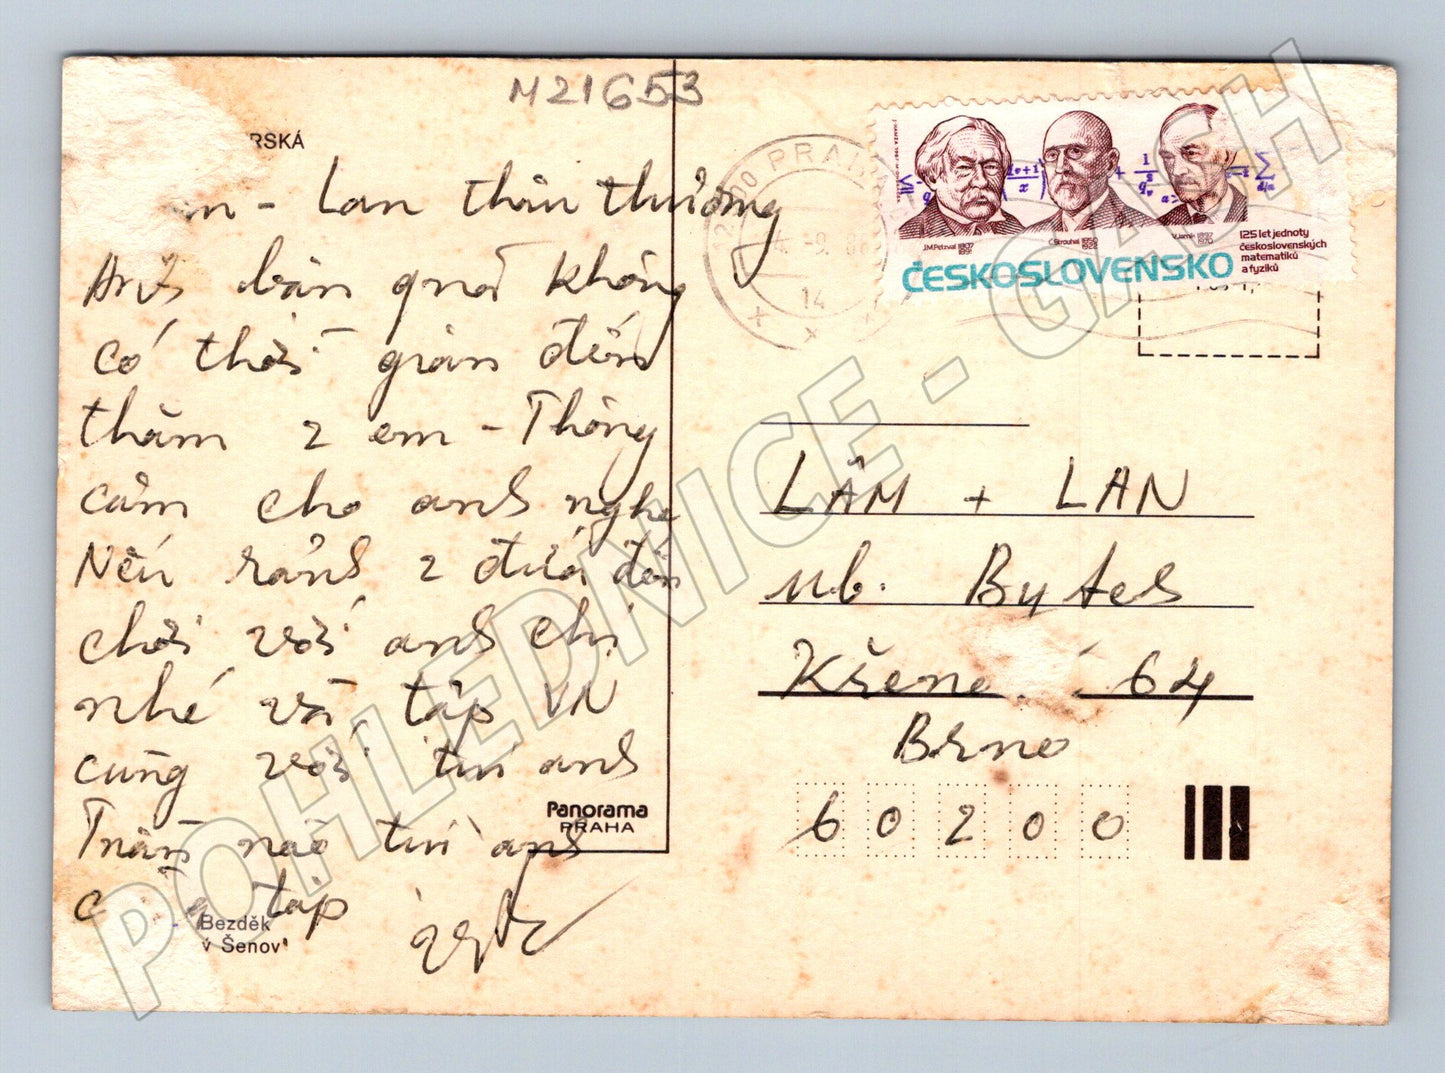 M21653
RSKÁ
m - Lan thân thương
Anh bận quá không
có thời gian đến
thăm 2 em - Thông
cảm cho anh nghe
Nếu rảnh 2 đứa đến
chơi với anh chị
nhé và tập VN
cùng với tụi anh
tụi anh
tập
Panorama
PRAHA
Bezděk
v Šenov
PRAHA
-9.
14
J.M.Petzval 1807 1891
Č.Strouhal 1850 1922
V.Jarník 1897 1970
125 let jednoty
československých
matematiků
a fyziků
ČESKOSLOVENSKO
LÂM + LAN
ub. Bytes
Křenová 64
Brno
60200
POHLEDNICE - GASH